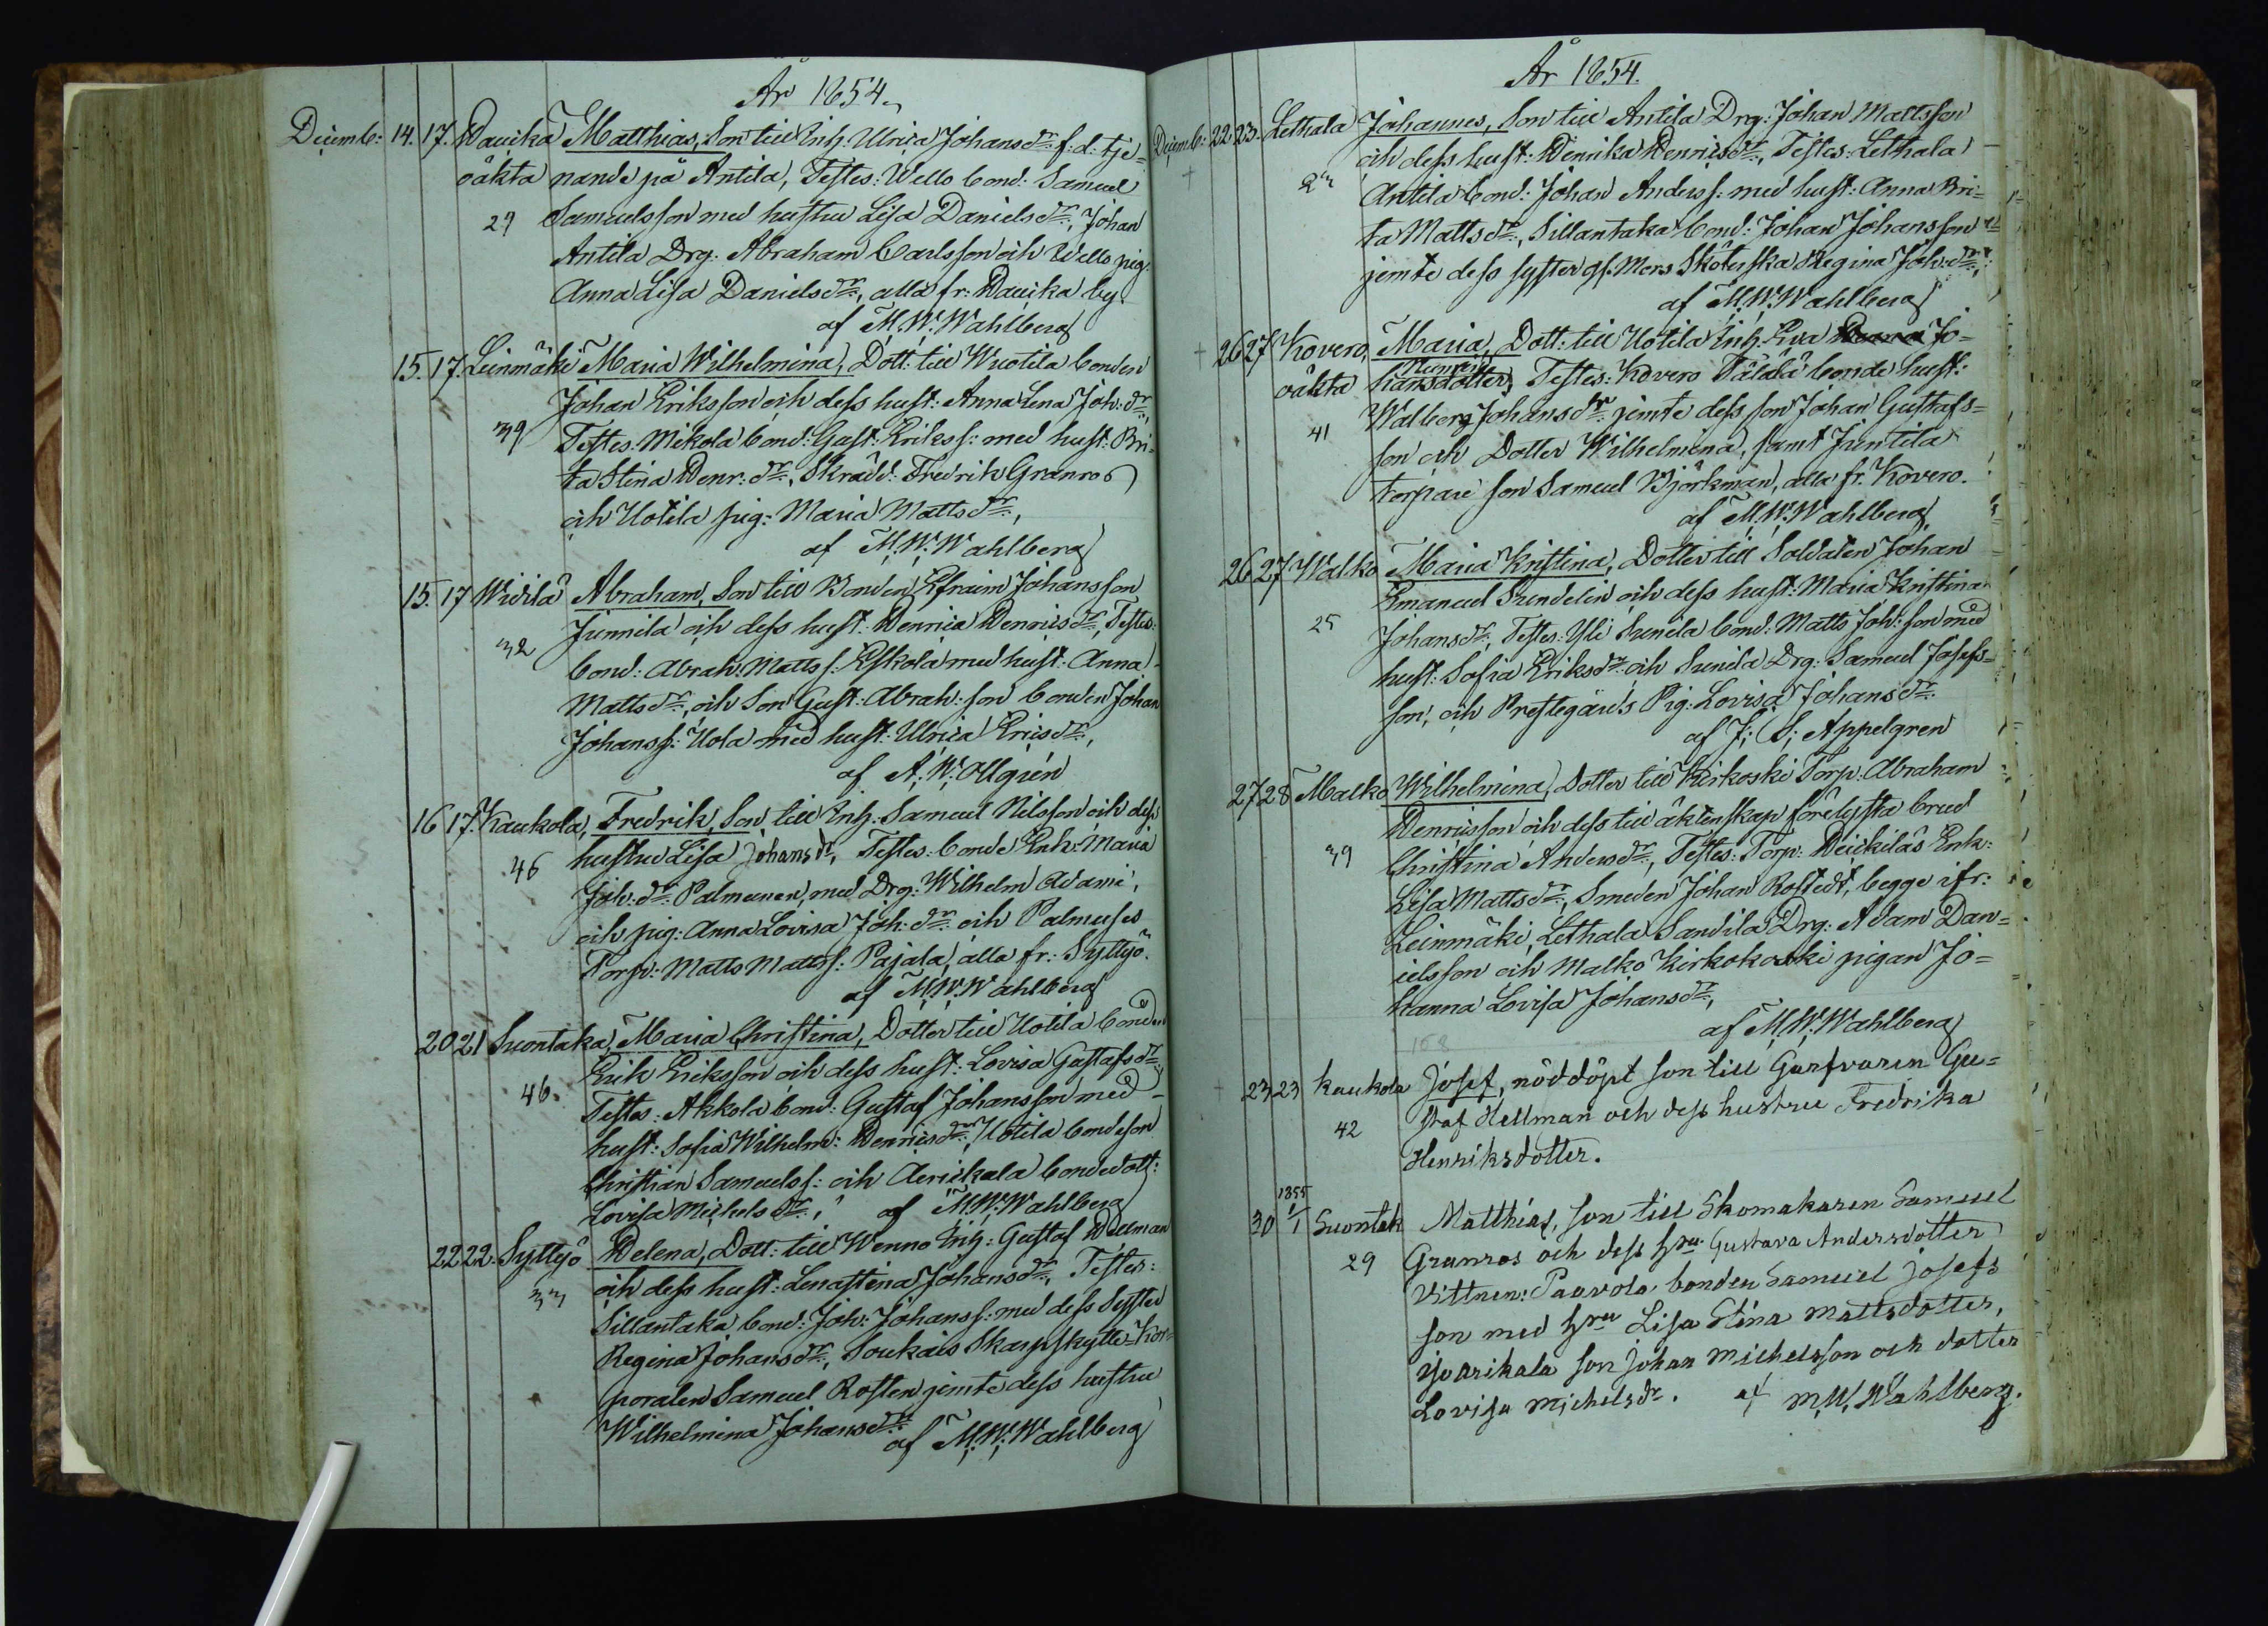 År 1854.
Decemb: 14. 17. Hauika Matthias, Son till Inh: Ulrica Johansdr. f: d: tje-
oäkta nande på Antila, Testes: Wello bond: Samuel
29 Samuelsson med hustru Lisa Danielsdr:, Johan
Antila Drg: Abraham Carlsson och Wello pig:
Anna Lisa Danielsdr:, alla fr: Hauika by.
af M. W. Wahlberg
15. 17. Leinmäki Maria Wilhelmina, Dott: till Wuotila bonden
Johan Eriksson och dess hust: Anna Lena Joh: dr:,
39 Testes: Mikola bond: Gust: Erikss: med hust: Bri-
ta Stina Henr: dr:, Skrädd: Fredrik Granros
och Uotila pig: Maria Mattsdr:,
af M. W. Wahlberg
15. 17 Widilä Abraham, Son till Bonden Efraim Johansson
Junnila och dess hust: Henrica Henricsdr:, Testes:
32 bond: Abrah: Mattss: Eskola med hust: Anna
Mattsdr:, och Son Gust: Abrah: son bonden Johan
Johanss: Uola med hust: Ulrica Ericsdr:,
af A. W. Ollgren
16 17. Kaukola, Fredrik, Son till Inh: Samuel Nilsson och dess
46 hustru Lisa Johansdr, Testes: bonde Enk: Maria
Joh: dr: Palmunen, med Drg: Wilhelm Adami,
och pig: Anna Lovisa Joh: dr: och Palmuses
Torp: Matts Mattss: Pajala, alla fr: Syllyö.
af M. W. Wahlberg
20 21 Suontaka, Maria Christina, Dotter till Uotila bonden
Erik Eriksson och dess hust: Lovisa Gustafsdr:,
46. Testes: Akkola bond: Gustaf Johansson med
hust: Sofia Wilhelm: Henricsdr:, Uotila bondeson
Christian Samuelss: och Aerickala bondedott:
Lovisa Michelsdr:, af M. W. Wahlberg
22 22. Syllyö Helena, Dott: till Wenno Inh: Gustaf Hellman
33 och dess hust: Lenastina Johansdr:, Testes:
Sillantaka bond: Joh: Johanss: med dess Syster
Regina Johansdr:, Soukais Skarpskytte-Kor-
poralen Samuel Rosten jemte dess hustru
Wilhelmina Johansdr:
af M. W. Wahlberg
År 1854.
Decemb: 22 23. Lethala Johannes, Son till Antila Drg: Johan Mattsson
och dess hust: Henrika Henricsdr:, Testes: Lethala
Antila bond: Johan Anderss: med hust: Anna Bri-
ta Mattsdr:, Sillantaka bond: Johan Johansson
jemte dess syster gl. Mors Sköterska Regina Joh: dr:,
af M. W. Wahlberg
+ 26 27 Kovero, Maria, Dott: till Uotila Inh: Eva Jo-
oäkta hansdotter, Testes: Kovero Tälälä bonde hust:
41 Walborg Johansdr: jemte dess son Johan Gustafs-
son och Dotter Wilhelmina, samt Juntila
torpare son Samuel Björkman, alla fr. Kovero.
af M. W. Wahlberg
26 27 Walko Maria Kristina, Dotter till Soldaten Johan
Emanuel Sundelin och dess hust: Maria Kristina
25 Johansdr:, Testes: Yli Sunila bond: Matts Joh: son med
hust: Sofia Eriksdr: och Sunila Drg: Samuel Josefs-
son, och Prestegårds Pig: Lovisa Johansdr:
af J. S. Appelgren
27 28 Malko Wilhelmina, Dotter till Kirkoski Torp: Abraham
Henricsson och dess till äktenskap förelysta brud
39 Christina Andersdr:, Testes: Torp: Heickiläs Enk:
Lisa Mattsdr:, Smeden Johan Rostedt, begge ifr:
Leinmäki, Lethala Sandila Drg: Adam Dan-
ielsson och Malko Kirkokoski pigan Jo-
hanna Lovisa Johansdr:,
af M. W. Wahlberg
168
23 23 Kaukola Josef, nöddöpt son till Garfvaren Gu-
42 staf Hellman och dess hustru Fredrika
Henriksdotter.
30 1855 1/1 Suontak Matthias, son till Skomakaren Samuel
29 Granros och dess hru Gustava Andersdotter
Vittnen: Paavola bonden Samuel Josefs
son med hru Lisa Stina Mattsdotter,
Yvarikala son Johan Michelsson och dotter
Lovisa Michelsdr. af M. W. Wahlberg.